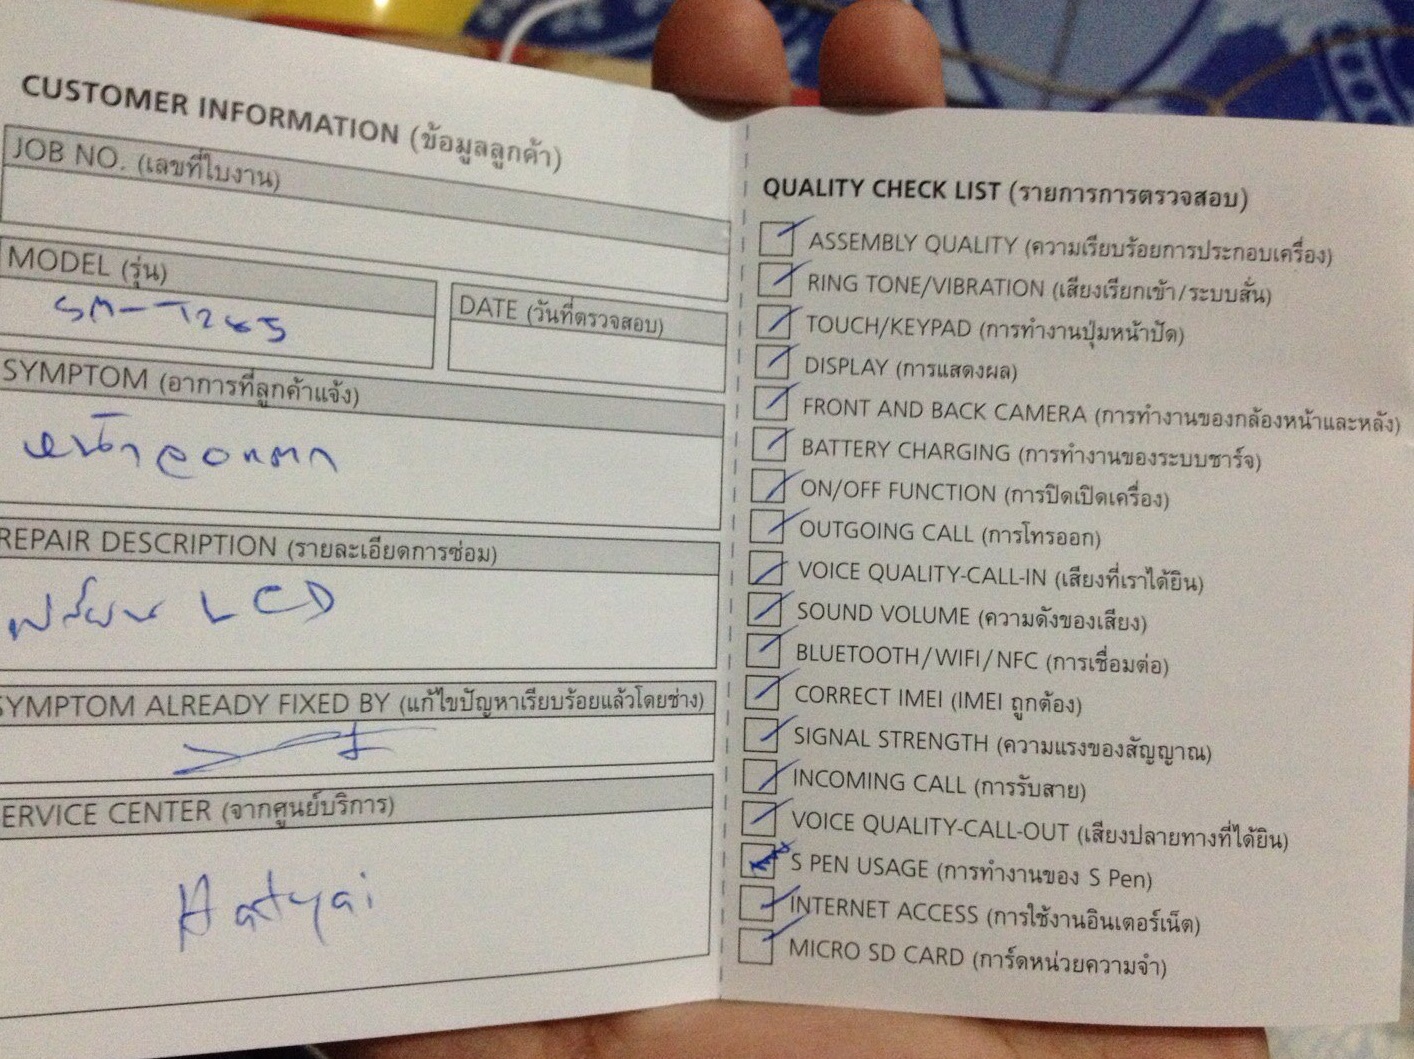 CUSTOMER INFORMATION (ข้อมูลลูกค้า)
JOB NO. (เลขที่ใบงาน)
MODEL (รุ่น)
SM-T265
DATE (วันที่ตรวจสอบ)
SYMPTOM (อาการที่ลูกค้าแจ้ง)
หน้าจอแตก
REPAIR DESCRIPTION (รายละเอียดการซ่อม)
LCD
SYMPTOM ALREADY FIXED BY (แก้ไขปัญหาเรียบร้อยแล้วโดยช่าง)
ERVICE CENTER (จากศูนย์บริการ)
Hatyai
QUALITY CHECK LIST (รายการการตรวจสอบ)
ASSEMBLY QUALITY (ความเรียบร้อยการประกอบเครื่อง)
RING TONE/VIBRATION (เสียงเรียกเข้า/ระบบสั่น)
TOUCH/KEYPAD (การทำงานปุ่มหน้าปัด)
DISPLAY (การแสดงผล)
FRONT AND BACK CAMERA (การทำงานของกล้องหน้าและหลัง)
BATTERY CHARGING (การทำงานของระบบชาร์จ)
ON/OFF FUNCTION (การปิดเปิดเครื่อง)
OUTGOING CALL (การโทรออก)
VOICE QUALITY-CALL-IN (เสียงที่เราได้ยิน)
SOUND VOLUME (ความดังของเสียง)
BLUETOOTH/WIFI/NFC (การเชื่อมต่อ)
CORRECT IMEI (IMEI ถูกต้อง)
SIGNAL STRENGTH (ความแรงของสัญญาณ)
INCOMING CALL (การรับสาย)
VOICE QUALITY-CALL-OUT (เสียงปลายทางที่ได้ยิน)
S PEN USAGE (การทำงานของ S Pen)
INTERNET ACCESS (การใช้งานอินเตอร์เน็ต)
MICRO SD CARD (การ์ดหน่วยความจำ)